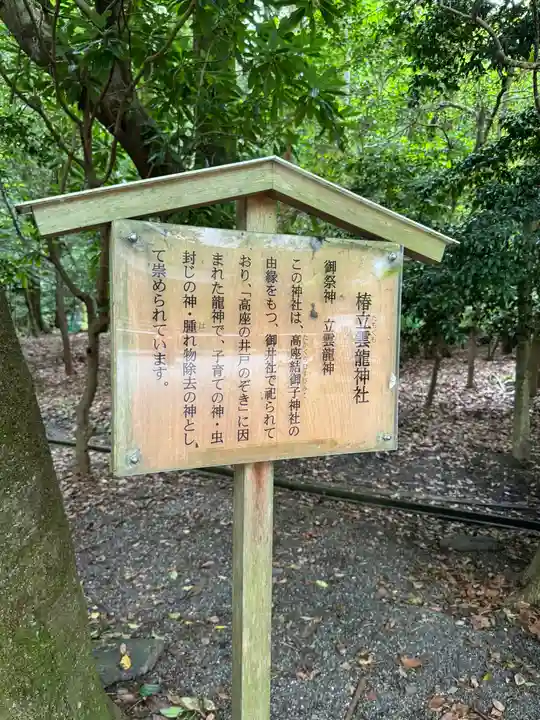 椿立雲龍神社
御祭神　立雲龍神
この神社は、高座結御子神社の
由縁をもつ、御井社で祀られて
おり、「高座の井戸のぞき」に因
まれた龍神で、子育ての神・虫
封じの神・腫れ物除去の神とし
て崇められています。